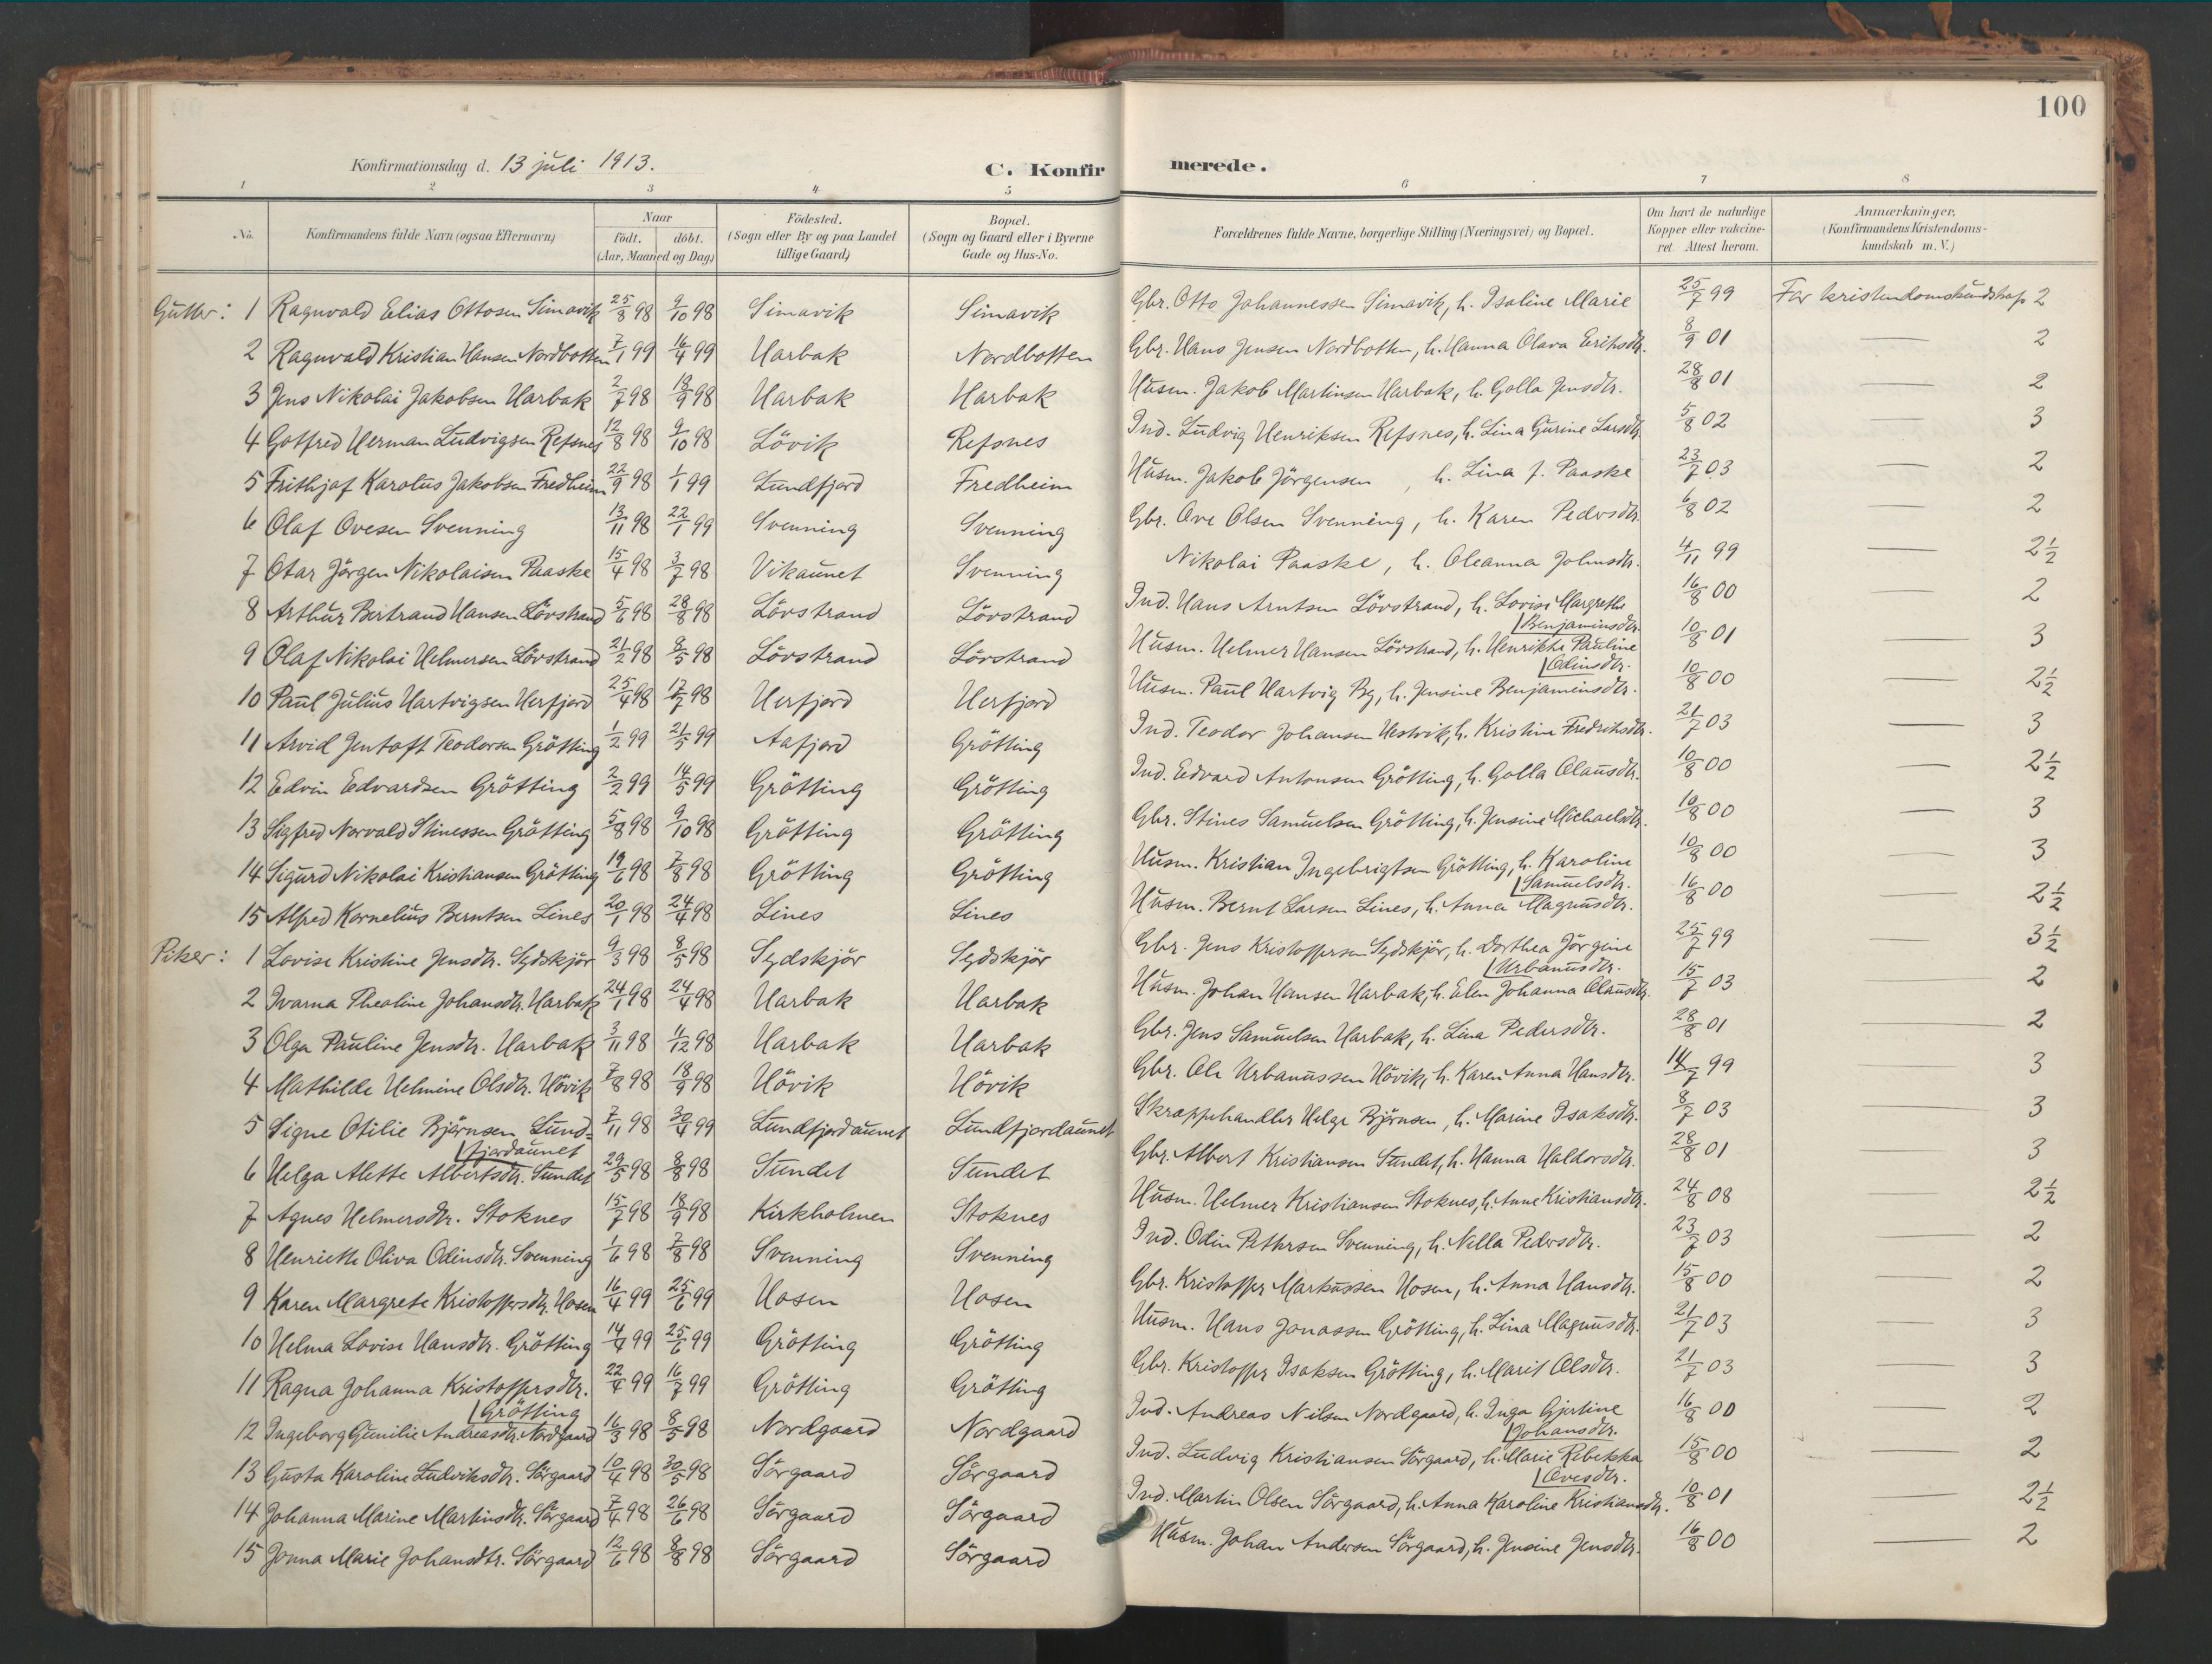 100
Konfirmationsdag d. 13 juli 1913.
C. Konfirmerede.
1 2 3 4 5 6 7 8
No. | Konfirmandens fulde Navn (ogsaa Efternavn) | Naar födt. döbt. (Aar, Maaned og Dag) | Födested. (Sogn eller By og paa Landet tillige Gaard) | Bopæl. (Sogn og Gaard eller i Byerne Gade og Hus-No. | Forældrenes fulde Navne, borgerlige Stilling (Næringsvei) og Bopæl. | Om havt de naturlige Kopper eller vakcineret. Attest herom. | Anmærkninger. (Konfirmandens Kristendomskundskab m. V.)
Gutter: 1 Ragnvald Elias Ottosen Simavik 25/8 98 9/10 98 Simavik Simavik Gbr. Otto Johannessen Simavik, h. Isaline Marie 25/7 99 For kristendomskundskap 2
2 Ragnvald Kristian Hansen Nordbotten 7/1 99 16/4 99 Harbak Nordbotten Gbr. Hans Jensen Nordbotten, h. Hanna Olava Eriksdtr. 8/9 01 — 2
3 Jens Nikolai Jakobsen Harbak 2/7 98 18/9 98 Harbak Harbak Husm. Jakob Martinsen Harbak, h. Golla Jensdtr. 28/8 01 — 2
4 Gotfred Herman Ludvigsen Refsnes 12/8 98 9/10 98 Lövik Refsnes Ind. Ludvig Henriksen Refsnes, h. Lina Gurine Larsdtr. 5/8 02 — 3
5 Frithjof Karolus Jakobsen Fredheim 22/9 98 1/1 99 Lundfjord Fredheim Husm. Jakob Jörgensen , h. Lina f. Paaske 23/7 03 — 2
6 Olaf Ovesen Svenning 13/11 98 22/1 99 Svenning Svenning Gbr. Ove Olsen Svenning, h. Karen Pedersdtr. 6/8 02 — 2
7 Otar Jörgen Nikolaisen Paaske 15/4 98 3/7 98 Vikaunet Svenning Nikolai Paaske, h. Oleanna Johnsdtr. 4/11 99 — 2½
8 Arthur Bertrand Hansen Lövstrand 5/6 98 28/8 98 Lövstrand Lövstrand Ind. Hans Arntsen Lövstrand, h. Lovise Margrethe 16/8 00 — 2
Benjaminsdtr.
9 Olaf Nikolai Helmersen Lövstrand 21/2 98 8/5 98 Lövstrand Lövstrand Husm. Helmer Hansen Lövstrand, h. Henrikke Pauline 10/8 01 — 3
Odinsdtr.
10 Paul Julius Hartvigsen Herfjord 25/4 98 17/7 98 Herfjord Herfjord Husm. Paul Hartvig By, h. Jensine Benjaminsdtr. 10/8 00 — 2½
11 Arvid Jentoft Teodorsen Grötting 1/2 99 21/5 99 Aafjord Grötting Ind. Teodor Johansen Hestvik, h. Kristine Fredriksdtr. 21/7 03 — 3
12 Edvin Edvardsen Grötting 2/2 99 14/5 99 Grötting Grötting Ind. Edvard Antonsen Grötting, h. Golla Olausdtr. 10/8 00 — 2½
13 Sigfred Norvald Stinessen Grötting 5/8 98 9/10 98 Grötting Grötting Gbr. Stines Samuelsen Grötting, h. Jensine Michaelsdtr. 10/8 00 — 3
14 Sigurd Nikolai Kristiansen Grötting 19/6 98 7/8 98 Grötting Grötting Husm. Kristian Ingebrigtsen Grötting, h. Karoline 10/8 00 — 3
Samuelsdtr.
15 Alfred Kornelius Berntsen Lines 20/1 98 24/4 98 Lines Lines Husm. Bernt Larsen Lines, h. Anna Magnusdtr. 16/8 00 — 2½
Piker: 1 Lovise Kristine Jensdtr. Sydskjör 9/3 98 8/5 98 Sydskjör Sydskjör Gbr. Jens Kristoffersen Sydskjör, h. Dorthea Jörgine 25/7 99 — 3½
Urbanusdtr.
2 Ivarna Theoline Johansdtr. Harbak 24/1 98 24/4 98 Harbak Harbak Husm. Johan Hansen Harbak, h. Elen Johanna Olausdtr. 15/7 03 — 2
3 Olga Pauline Jensdtr. Harbak 3/11 98 4/12 98 Harbak Harbak Gbr. Jens Samuelsen Harbak, h. Lina Pedersdtr. 28/8 01 — 2
4 Mathilde Helmine Olsdtr. Hövik 7/8 98 18/9 98 Hövik Hövik Gbr. Ole Urbanussen Hövik, h. Karen Anna Hansdtr. 14/7 99 — 3
5 Signe Otilie Björnsen Lund= 7/11 98 30/4 99 Lundfjordaunet Lundfjordaunet Skrappehandler Helge Björnsen, h. Marine Isaksdtr. 8/7 03 — 3
fjordaunet
6 Helga Alette Albertsdtr. Sundet 29/5 98 8/8 98 Sundet Sundet Gbr. Albert Kristiansen Sundet, h. Hanna Haldorsdtr. 28/8 01 — 3
7 Agnes Helmersdtr. Stoknes 15/7 98 18/9 98 Kirkholmen Stoknes Husm. Helmer Kristiansen Stoknes, h. Anne Kristiansdtr. 24/8 08 — 2½
8 Henriette Oliva Odinsdtr. Svenning 1/6 98 7/8 98 Svenning Svenning Ind. Odin Pettersen Svenning, h. Nella Pedersdtr. 23/7 03 — 2
9 Karen Margrete Kristoffersdtr. Hosen 16/4 99 25/6 99 Hosen Hosen Gbr. Kristoffer Markussen Hosen, h. Anna Hansdtr. 15/8 00 — 2
10 Helma Lovise Hansdtr. Grötting 14/4 99 25/6 99 Grötting Grötting Husm. Hans Jonassen Grötting, h. Lina Magnusdtr. 21/7 03 — 3
11 Ragna Johanna Kristoffersdtr. 22/4 99 16/7 99 Grötting Grötting Gbr. Kristoffer Isaksen Grötting, h. Marit Olsdtr. 21/7 03 — 3
Grötting
12 Ingeborg Gunilie Andreasdtr. Nordgaard 16/3 98 8/5 98 Nordgaard Nordgaard Ind. Andreas Nilsen Nordgaard, h. Inga Gjertine 16/8 00 — 2
Johansdtr.
13 Gusta Karoline Ludviksdtr. Sörgaard 10/4 98 30/5 98 Sörgaard Sörgaard Ind. Ludvig Kristiansen Sörgaard, h. Marie Rebekka 15/8 00 — 2
Ovesdtr.
14 Johanna Marine Martinsdtr. Sörgaard 7/4 98 26/6 98 Sörgaard Sörgaard Ind. Martin Olsen Sörgaard, h. Anna Karoline Kristiansdtr. 10/8 01 — 2½
15 Jonna Marie Johansdtr. Sörgaard 12/6 98 8/8 98 Sörgaard Sörgaard Husm. Johan Andersen Sörgaard, h. Jensine Jensdtr. 16/8 00 — 2